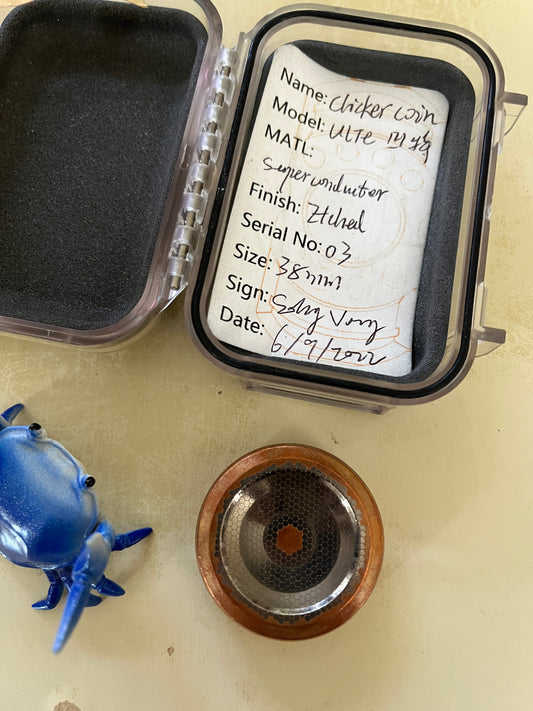 Name: Clicker coin
Model: ULTC
MATL:
superconductor
Finish: Etched
Serial No: 03
Size: 38mm
Sign:
Date: 6/9/2022